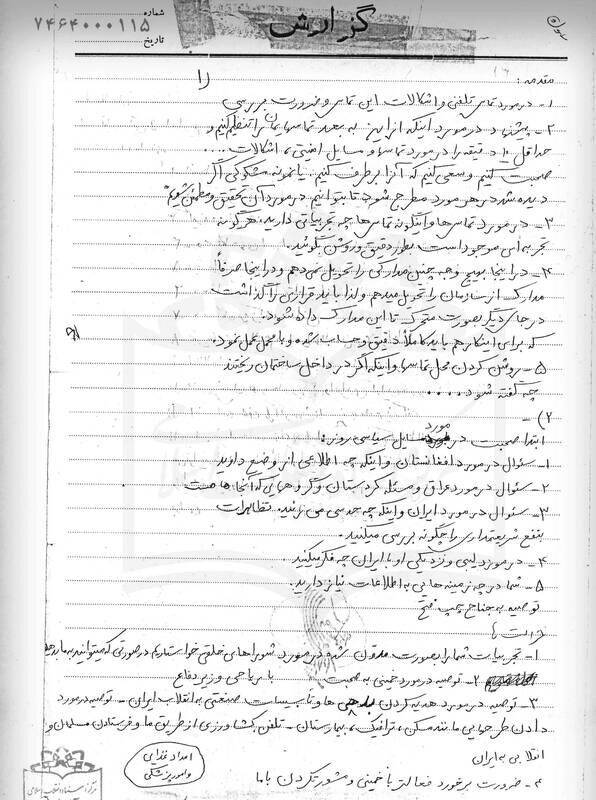 گزارش
شماره ۷۴۶۴۰۰۰۱۱۵
تاریخ
مقدمه:
۱- در مورد تماس تلفنی و اشکالات این تماس و ضرورت بررسی
۲- پیشنهاد در مورد اینکه از این به بعد تماسهایمان را تنظیم کنیم و
حداقل ۱۰ دقیقه را در مورد تماسها و مسایل امنیتی، اشکالات ....
صحبت کنیم و سعی کنیم که آنرا برطرف کنیم. یا نمونه مشکوکی اگر
دیده شد در هر مورد مطرح شود تا بتوانیم در مورد آن تحقیق و مطمئن شویم
۳- در مورد تماس‌ها و اینگونه تماس‌ها چه تجربیاتی دارید. هرگونه
تجربه‌ای موجود است بطور دقیق و روشن بگوئید.
۴- در اینجا بهیچ وجه چنین مدارکی را تحویل نمی‌دهم و در اینجا صرفاً
مدارک از سازمان را تحویل میدهم و لذا باید قراری را گذاشت
در جای دیگر بصورت متحرک تا این مدارک داده شود.
که برای اینکار هم باید کاملاً دقیق و حساب شده و با محمل عمل نمود.
۵- روشن کردن محل تماسها و اینکه اگر در داخل ساختمان ریختند
چه گفته شود ....
۲) -
ابتدا صحبت در مورد مسایل سیاسی روز:
۱- سئوال در مورد افغانستان و اینکه چه اطلاعی از وضع دارید
۲- سئوال در مورد عراق و مسئله کردستان و گروهایی که آنجاها هست
۳- سئوال در مورد ایران و اینکه چه حدسی می‌زنید. تظاهرات
بنفع شریعتمداری را چگونه بررسی میکنید.
۴- در مورد لیبی و نزدیکی او با ایران چه فکر میکنید.
۵- شما در چه زمینه‌هایی به اطلاعات نیاز دارید.
توصیه به جناح چپ فتح
خواست‌ها
۱- تجربیات شما را بصورت مدون شده در مورد شوراهای خلقی خواستاریم در صورتی که میتوانید به ما بدهید
۲- توصیه در مورد خمینی به صحبت با ریاحی وزیر دفاع
۳- توصیه در مورد هدیه کردن ها و تأسیسات صنعتی به انقلاب ایران - توصیه در مورد
دادن طرحهایی مانند مسکن، ترافیک، بیمارستان - تلفن کشاورزی از طریق ما و فرستادن مسلمان و
انقلابی به ایران
۴- ضرورت برخورد فعالتر با خمینی و مشورت کردن با ما
امداد غذایی
و امور پزشکی
مرکز اسناد انقلاب اسلامی